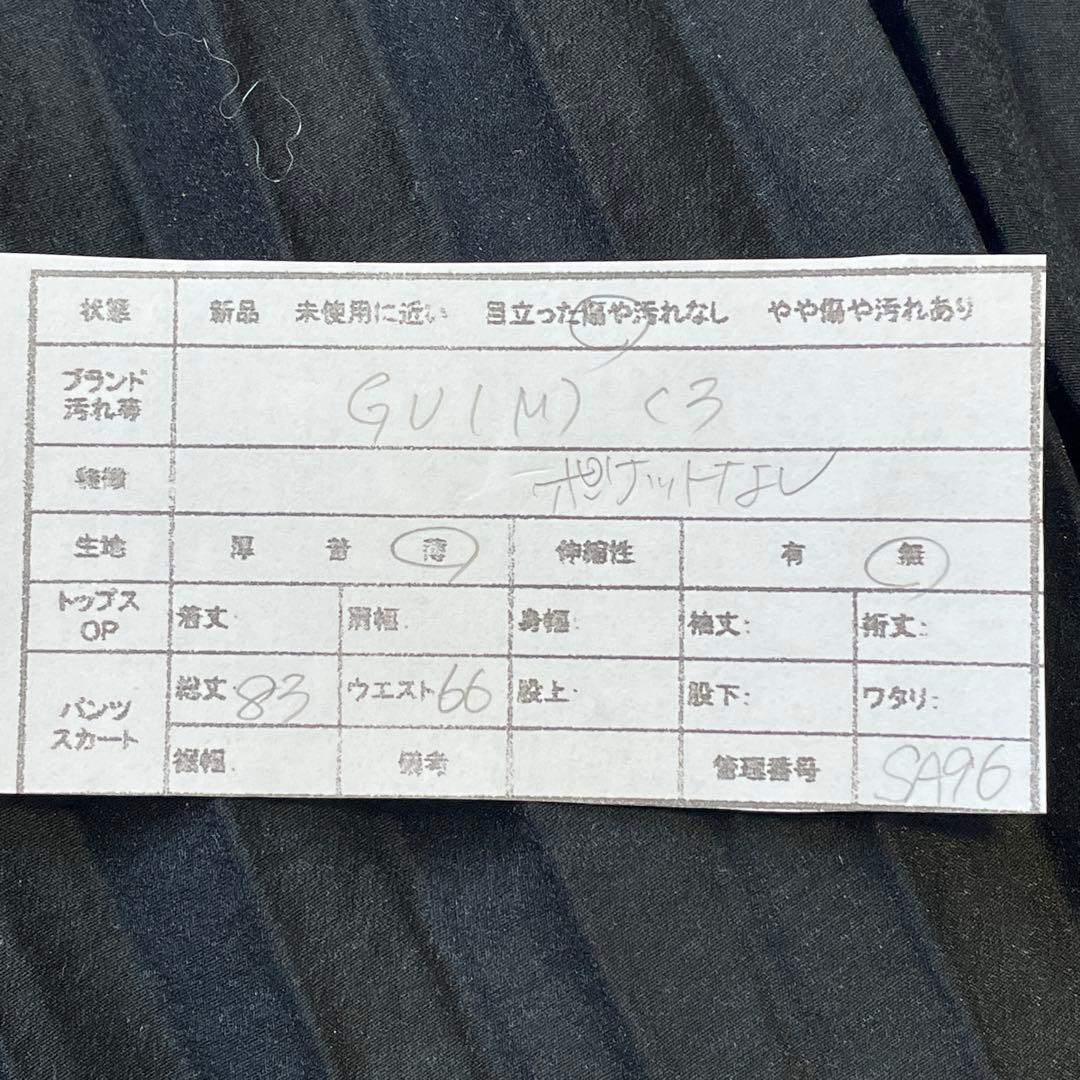 状態 新品 未使用に近い 目立った傷や汚れなし やや傷や汚れあり
ブランド
汚れ等
GU(M) C3
特徴 ポケットなし
生地 厚 普 薄 伸縮性 有 無
トップス
OP
着丈: 肩幅: 身幅: 袖丈: 裄丈:
パンツ
スカート
総丈:83 ウエスト66 股上: 股下: ワタリ:
裾幅: 備考 管理番号 SA96